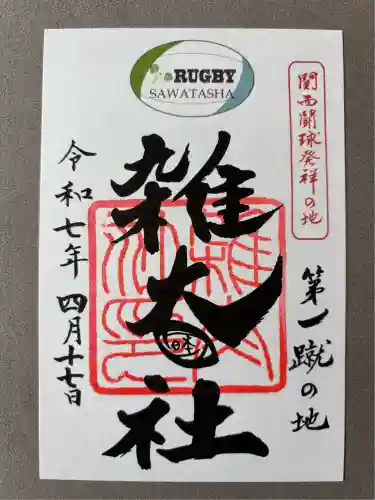 RUGBY
SAWATASHA
関西闘球発祥の地
第一蹴の地
雑太社
日本一
令和七年 四月十七日